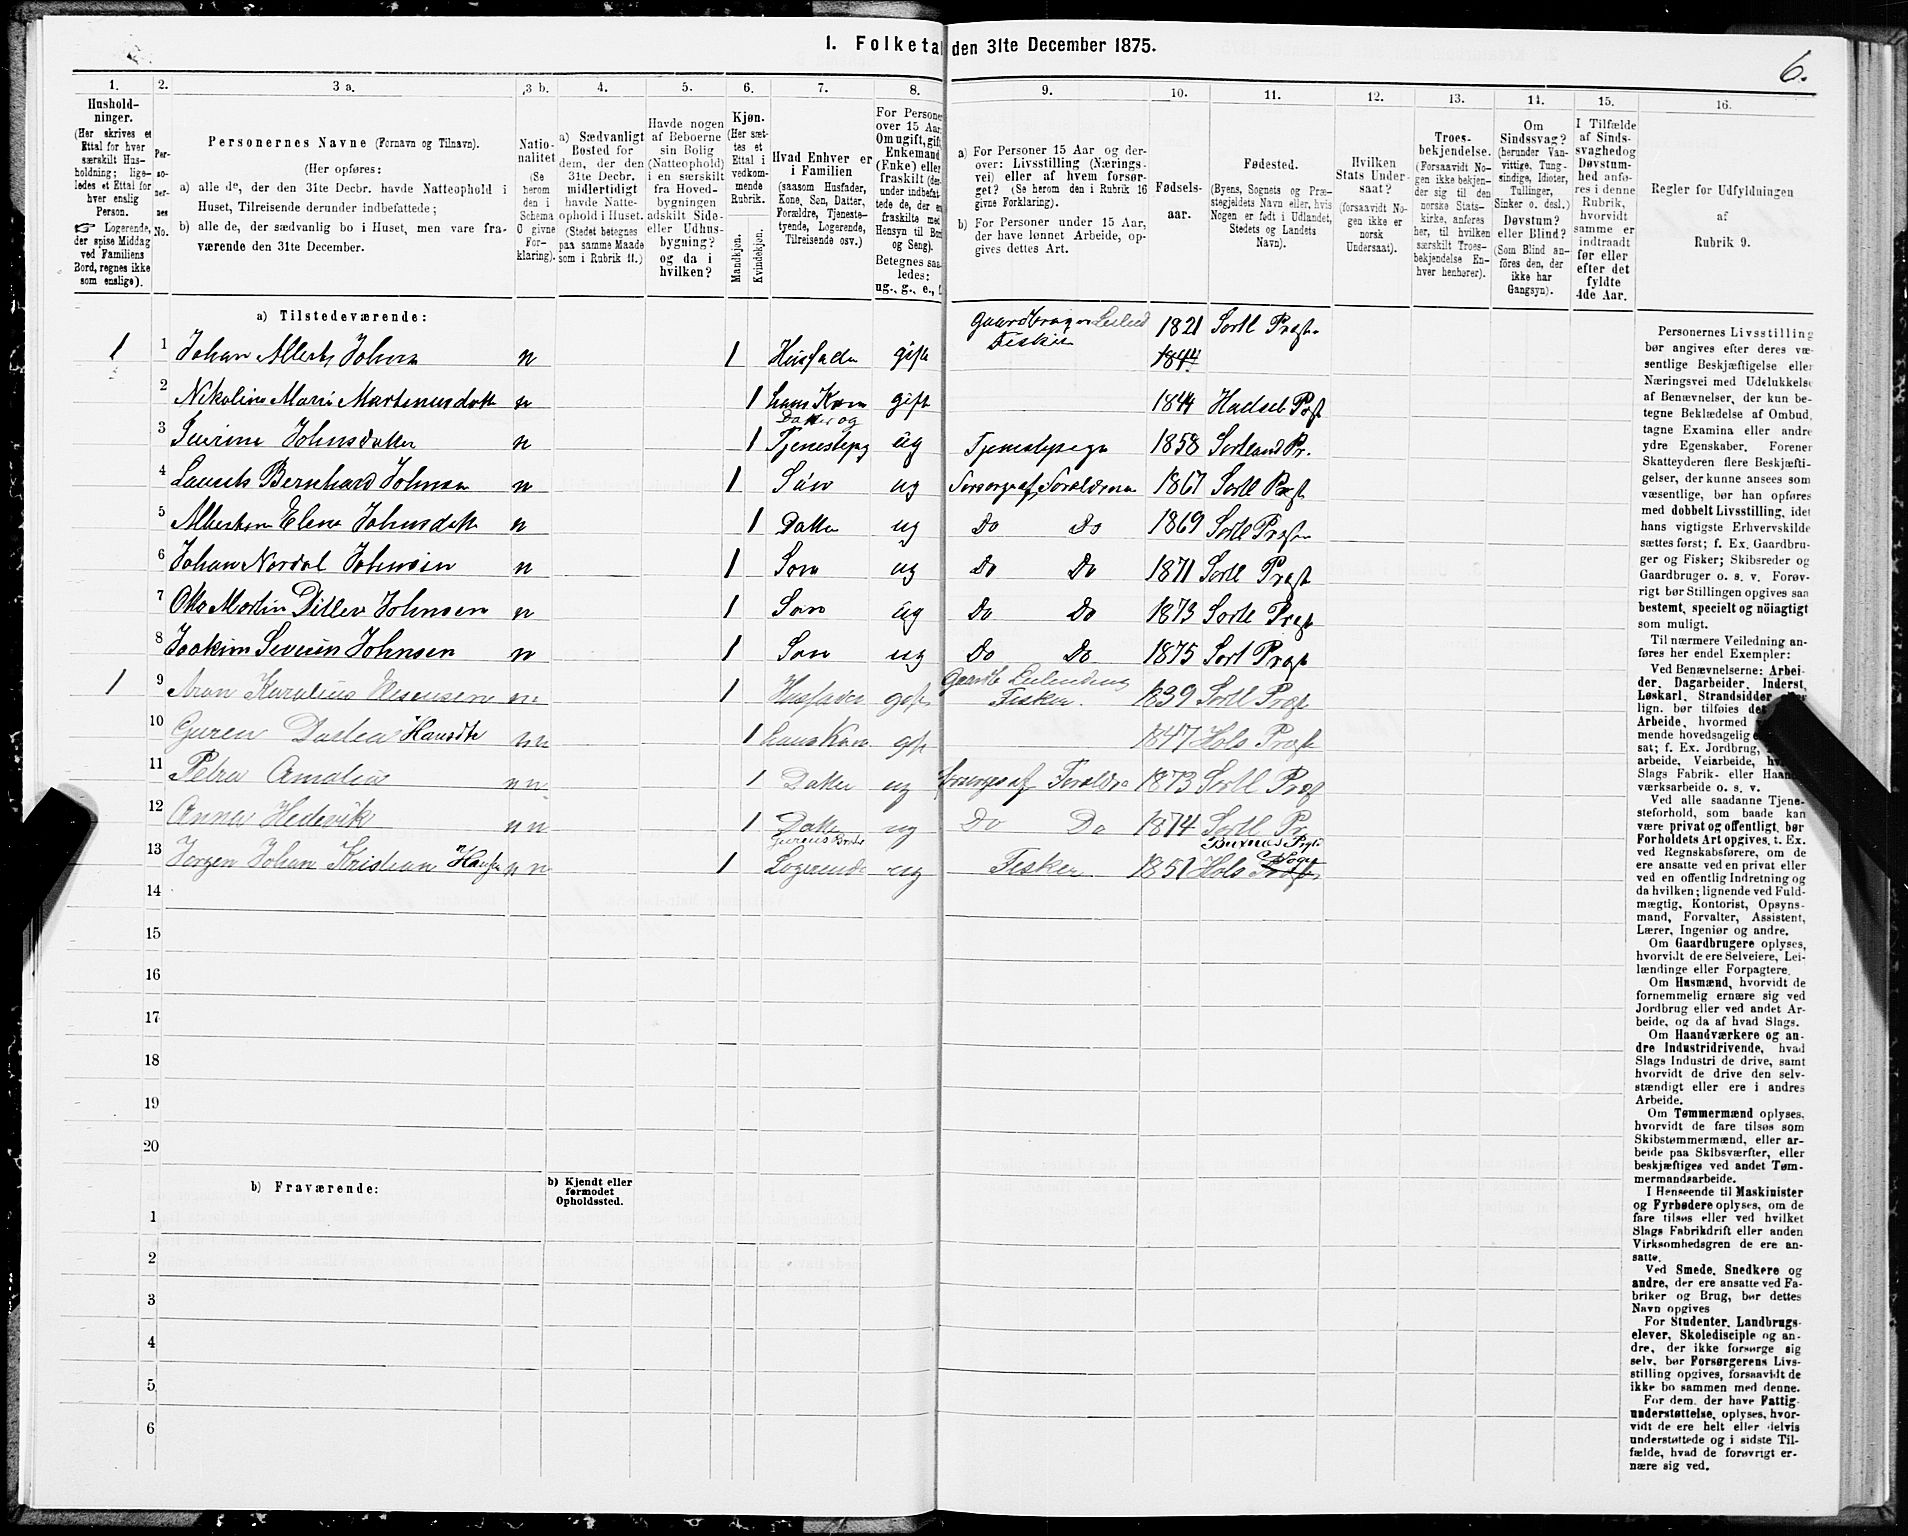 1. Folketa den 31te December 1875.
6.
1.
Hushold-
ninger.
(Her skrives et
Ettal for hver
særskilt Hus-
holdning; lige-
ledes et Ettal for
hver enslig
Person.
☞ Logerende,
der spise Middag
ved Familiens
Bord, regnes ikke
som enslige).
2.
Per-
so-
ner-
nes
No.
3 a.
Personernes Navne (Fornavn og Tilnavn).
(Her opføres:
a) alle de, der den 31te Decbr. havde Natteophold i
Huset, Tilreisende derunder indbefattede;
b) alle de, der sædvanlig bo i Huset, men vare fra-
værende den 31te December.
3 b.
Natio-
nalitet
(Se
herom
den i
Schema
O givne
For-
klaring).
4.
a) Sædvanligt
Bosted for
dem, der den
31te Decbr.
midlertidigt
havde Natte-
ophold i Huset.
(Stedet betegnes
paa samme Maade
som i Rubrik 11.)
5.
Havde nogen
af Beboerne
sin Bolig
(Natteophold)
i en særskilt
fra Hoved-
bygningen
adskilt Side-
eller Udhus-
bygning?
og da i
hvilken?
6.
Kjøn.
(Her sæt-
tes et
Ettal i
vedkom-
mende
Rubrik.
Mandkjøn.
Kvindekjøn.
7.
Hvad Enhver er
i Familien
(saasom Husfader,
Kone, Søn, Datter,
Forældre, Tjeneste-
tyende, Logerende,
Tilreisende osv.)
8.
For Persone
over 15 Aar
Om ugift, gift
Enkemand
(Enke) eller
fraskilt (der-
under indbefat-
tede de, der e
fraskilte med
Hensyn til Bo
og Seng).
Betegnes saa-
ledes:
ug., g., e., f
9.
a) For Personer 15 Aar og der-
over: Livsstilling (Nærings-
vei) eller af hvem forsør-
get? (Se herom den i Rubrik 16
givne Forklaring).
b) For Personer under 15 Aar,
der have lønnet Arbeide, op-
gives dettes Art.
10.
Fødsels-
aar.
11.
Fødested.
(Byens, Sognets og Præ-
stegjeldets Navn eller, hvis
Nogen er født i Udlandet,
Stedets og Landets
Navn).
12.
Hvilken
Stats Under-
saat?
(forsaavidt No-
gen ikke er
norsk
Undersaat).
13.
Troes-
bekjendelse.
(Forsaavidt No-
gen ikke bekjen-
der sig til den
norske Stats-
kirke, anføres
her, til hvilken
særskilt Troes-
bekjendelse En-
hver henhører).
14.
Om
Sindssvag?
(herunder Van-
vittige, Tung-
sindige, Idioter,
Tullinger,
Sinker o. desl.)
Døvstum?
eller Blind?
(Som Blind an-
føres den, der
ikke har
Gangsyn).
15.
I Tilfælde
af Sinds-
svaghed og
Døvstum-
hed anfø-
res i denne
Rubrik,
hvorvidt
samme er
indtraadt
før eller
efter det
fyldte
4de Aar.
16.
Regler for Udfyldningen
af
Rubrik 9.
a) Tilstedeværende:
Gaardbruger Leilend
1 1 Johan Alberts Johns n 1 Husfader gift Fisker 1821 1844 Sortl Præst.
2 Nikoline Marie Martinusdatt n 1 hans Kone gift 1844 Hadsel Præst
Datter og
3 Severine Johnsdatter n 1 Tjenestepg ug Tjenestepige 1858 Sortland Pr.
4 Laurits Bernhard Johnsen n 1 Søn ug Forsorges af Foraldrene 1867 Sortl Præst
5 Albertine Elene Johnsdatt n 1 Datter ug Do Do 1869 Sortl Præst
6 Johan Nordal Johnsen n 1 Søn ug Do Do 1871 Sortl Præst
7 Oto Martin Ditlev Johnsen n 1 Søn ug Do Do 1873 Sortl Præst
8 Joakim Severin Johnsen n 1 Søn ug Do Do 1875 Sortl Præst
1 9 Aron Karolius n 1 Husfader gift Gaardb Leilending Fisker. 1839 Sortl Præst
10 Guren Dortea Hansdtr n 1 hans Kone gift 1847 Hols Præst
11 Petra Amalie n 1 Datter ug forsorges af Foraldre 1873 Sortl Præst
12 Anna Hedevik n 1 Datter ug Do Do 1874 Sortl Pr
Gurens Broder Buxnes Prgld
13 Jørgen Johan Kristian Hansen n 1 Logerende ug Fisker 1851 Hols Sogn
14
15
16
17
18
19
20
b) Fraværende:
b) Kjendt eller
formodet
Opholdssted.
1
2
3
4
5
6
Personernes Livsstilling
bør angives efter deres væ-
sentlige Beskjæftigelse eller
Næringsvei med Udelukkelse
af Benævnelser, der kun be-
tegne Beklædelse af Ombud,
tagne Examina eller andre
ydre Egenskaber. Forener
Skatteyderen flere Beskjæfti-
gelser, der kunne ansees som
væsentlige, bør han opføres
med dobbelt Livsstilling, idet
hans vigtigste Erhvervskilde
sættes først; f. Ex. Gaardbru-
ger og Fisker; Skibsreder og
Gaardbruger o. s. v. Forøv-
rigt bør Stillingen opgives saa
bestemt, specielt og nöiagtigt
som muligt.
Til nærmere Veiledning an-
føres her endel Exempler:
Ved Benævnelserne: Arbei-
der, Dagarbeider, Inderst,
Løskarl, Strandsidder eller
lign. bør tilføies det
Arbeide, hvormed
mende hovedsagelig
sat; f. Ex. Jordbrug,
arbeide, Veiarbeide,
Slags Fabrik- eller Haand-
værksarbeide o. s. v.
Ved alle saadanne Tjene-
steforhold, som baade kan
være privat og offentligt, bør
Forholdets Art opgives, t. Ex.
ved Regnskabsførere, om de
ere ansatte ved en privat eller
ved en offentlig Indretning og
da hvilken; lignende ved Fuld-
mægtig, Kontorist, Opsyns-
mand, Forvalter, Assistent,
Lærer, Ingeniør og andre.
Om Gaardbrugere oplyses,
hvorvidt de ere Selveiere, Lei-
lændinge eller Forpagtere.
Om Husmænd, hvorvidt de
fornemmelig ernære sig ved
Jordbrug eller ved andet Ar-
beide, og da af hvad Slags.
Om Haandværkere og an-
dre Industridrivende, hvad
Slags Industri de drive, samt
hvorvidt de drive den selv-
stændigt eller ere i andres
Arbeide.
Om Tømmermænd oplyses,
hvorvidt de fare tilsøs som
Skibstømmermænd, eller ar-
beide paa Skibsværfter, eller
beskjæftiges ved andet Tøm-
mermandsarbeide.
I Henseende til Maskinister
og Fyrbødere oplyses, om de
fare tilsøs eller ved hvilket
Slags Fabrikdrift eller anden
Virksomhedsgren de ere an-
satte.
Ved Smede, Snedkere og
andre, der ere ansatte ved Fa-
briker og Brug, bør dettes
Navn opgives
For Studenter, Landbrugs-
elever, Skoledisciple og an-
dre, der ikke forsørge sig
selv, bør Forsørgerens Livs-
stilling opgives, forsaavidt de
ikke bo sammen med denne.
For dem, der have Fattig-
understøttelse, oplyses, hvor-
vidt de ere helt eller delvis
understøttede og i sidste Til-
fælde, hvad de forøvrigt er-
nære sig ved.